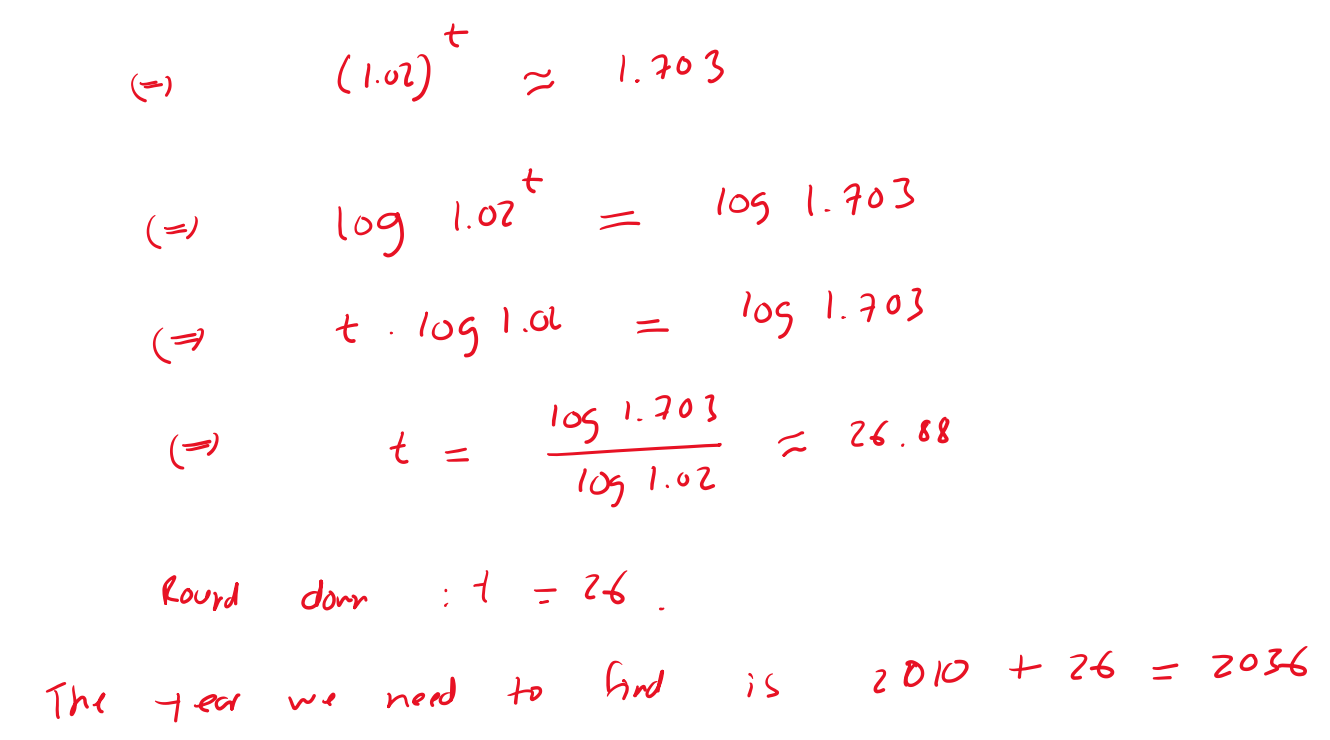 (=) (1.02)^t ≈ 1.703
(=) log 1.02^t = log 1.703
(=) t . log 1.02 = log 1.703
(=) t = log 1.703 / log 1.02 ≈ 26.88
Round down : t = 26 .
The year we need to find is 2010 + 26 = 2036